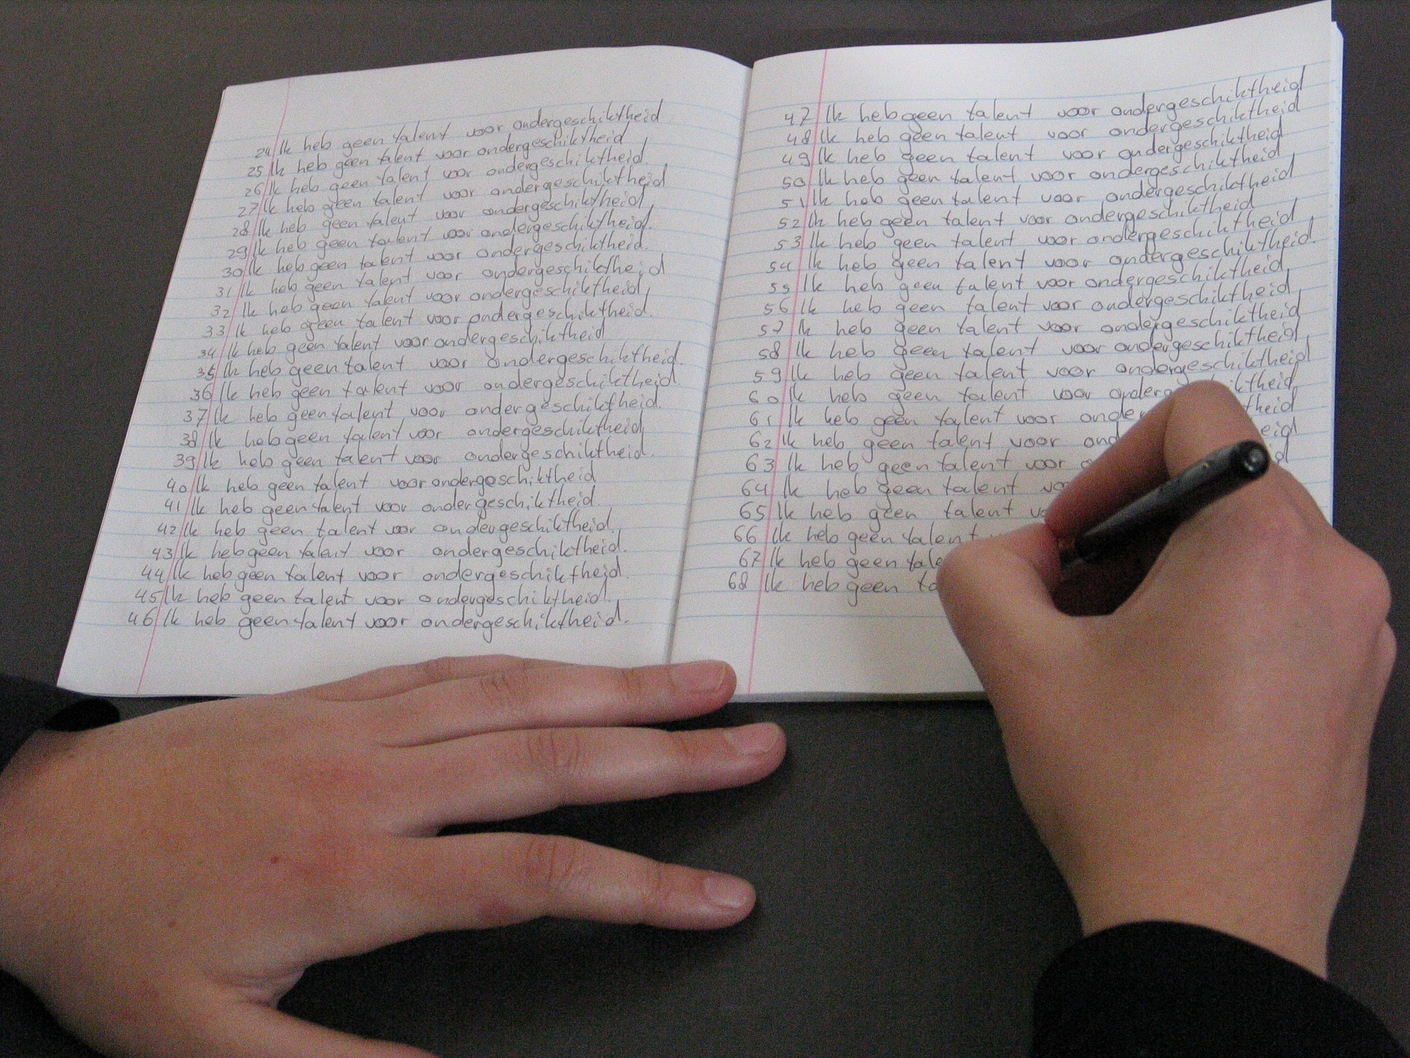 24 Ik heb geen talent voor ondergeschiktheid
25 Ik heb geen talent voor ondergeschiktheid
26 Ik heb geen talent voor ondergeschiktheid.
27 Ik heb geen talent voor ondergeschiktheid
28 Ik heb geen talent voor ondergeschiktheid
29 Ik heb geen talent voor ondergeschiktheid.
30 Ik heb geen talent voor ondergeschiktheid.
31 Ik heb geen talent voor ondergeschiktheid
32 Ik heb geen talent voor ondergeschiktheid.
33 Ik heb geen talent voor ondergeschiktheid.
34 Ik heb geen talent voor ondergeschiktheid
35 Ik heb geen talent voor ondergeschiktheid.
36 Ik heb geen talent voor ondergeschiktheid.
37 Ik heb geen talent voor ondergeschiktheid.
38 Ik heb geen talent voor ondergeschiktheid.
39 Ik heb geen talent voor ondergeschiktheid.
40 Ik heb geen talent voor ondergeschiktheid
41 Ik heb geen talent voor ondergeschiktheid
42 Ik heb geen talent voor ondergeschiktheid.
43 Ik heb geen talent voor ondergeschiktheid.
44 Ik heb geen talent voor ondergeschiktheid.
45 Ik heb geen talent voor ondergeschiktheid.
46 Ik heb geen talent voor ondergeschiktheid.
47 Ik heb geen talent voor ondergeschiktheid
48 Ik heb geen talent voor ondergeschiktheid
49 Ik heb geen talent voor ondergeschiktheid
50 Ik heb geen talent voor ondergeschiktheid
51 Ik heb geen talent voor ondergeschiktheid
52 Ik heb geen talent voor ondergeschiktheid
53 Ik heb geen talent voor ondergeschiktheid
54 Ik heb geen talent voor ondergeschiktheid.
55 Ik heb geen talent voor ondergeschiktheid
56 Ik heb geen talent voor ondergeschiktheid
57 Ik heb geen talent voor ondergeschiktheid
58 Ik heb geen talent voor ondergeschiktheid
59 Ik heb geen talent voor ondergeschiktheid
60 Ik heb geen talent voor
61 Ik heb geen talent voor
62 Ik heb geen talent voor
63 Ik heb geen talent voor
64 Ik heb geen talent
65 Ik heb geen talent
66 Ik heb geen talent
67 Ik heb geen
68 Ik heb geen